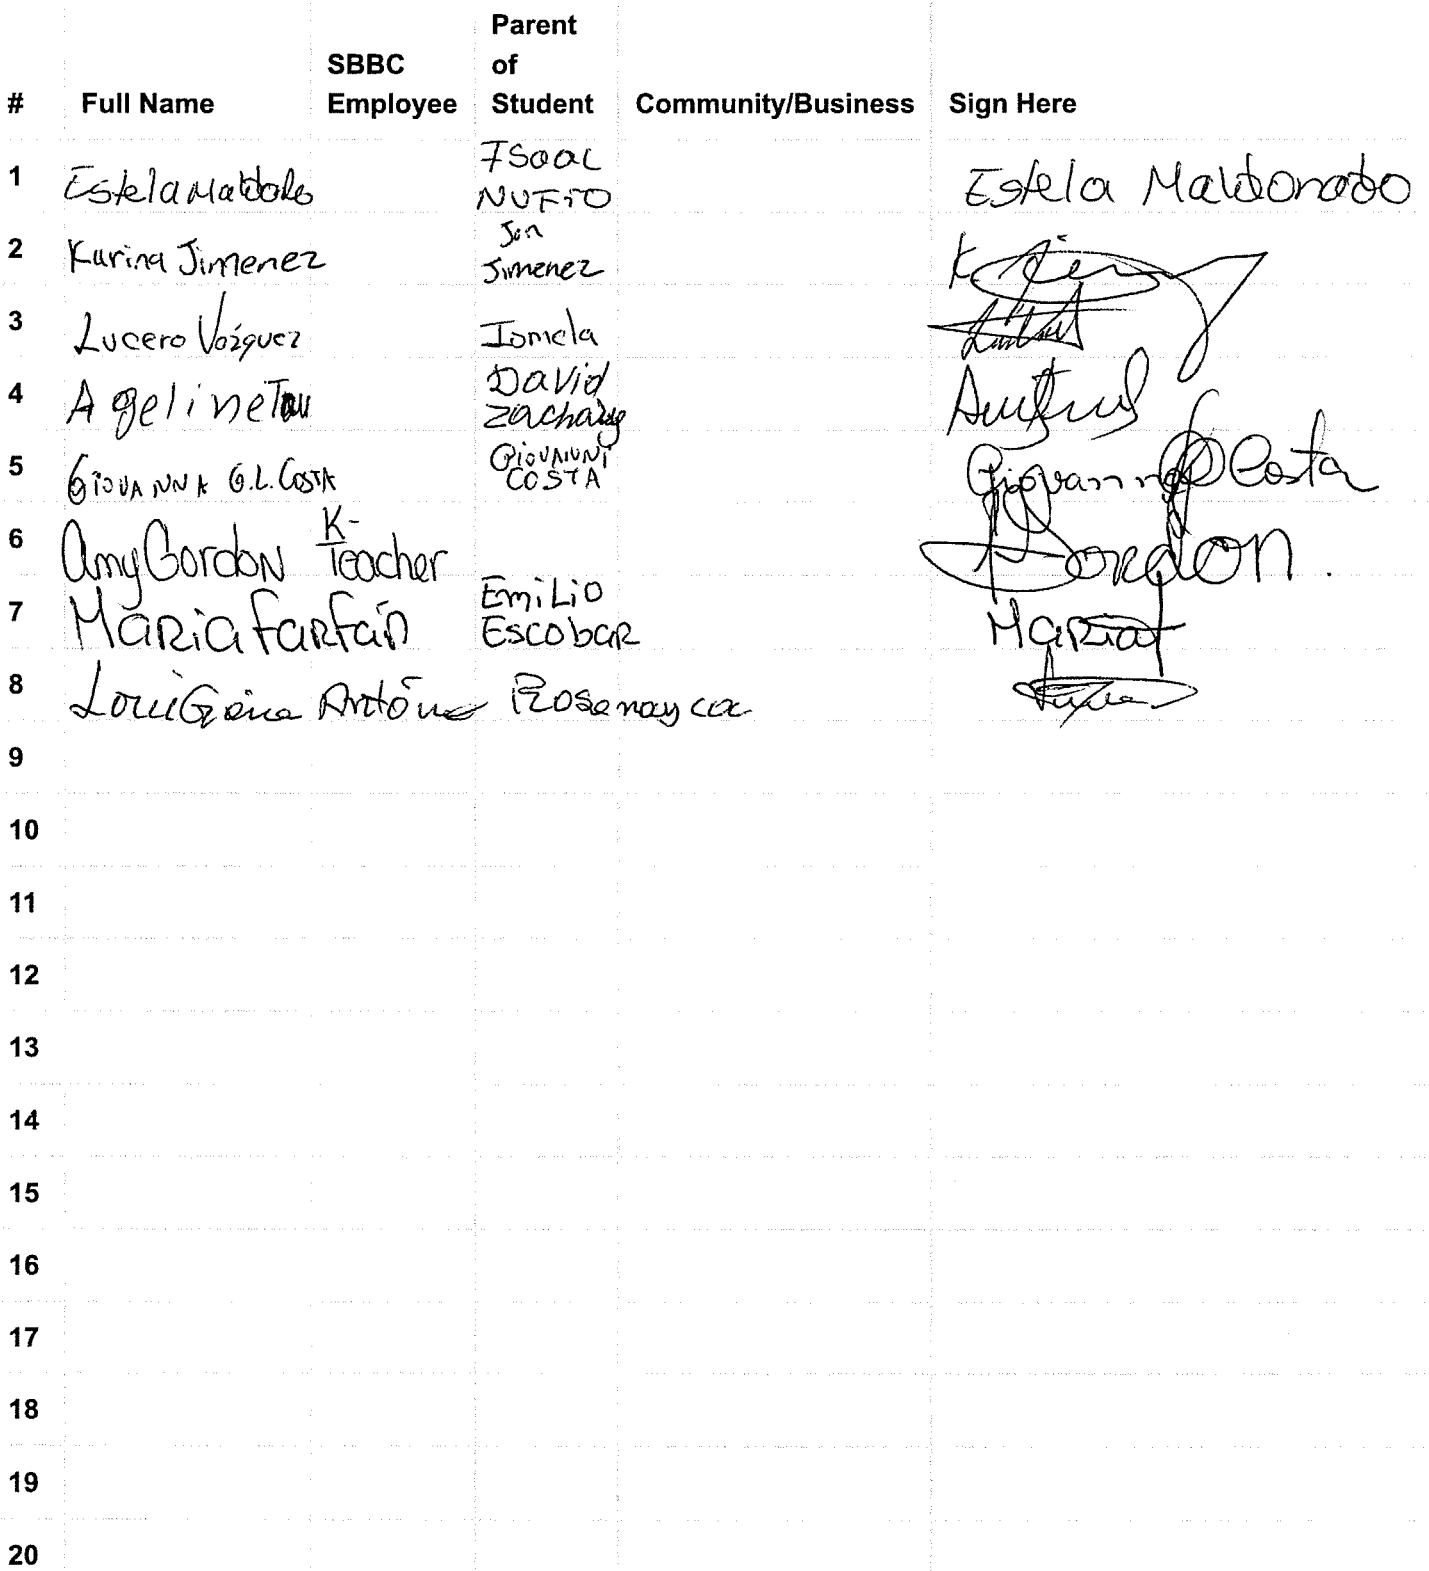 # Full Name SBBC Employee Parent of Student Community/Business Sign Here
1 Estela Maldonado Isaac NUFIO Estela Maldonado
2 Karina Jimenez Jon Jimenez
3 Lucero Vázquez
4 David Zachary
5 GIOVANNA G.L. COSTA GIOVANNI COSTA Giovanna Costa
6 Amy Gordon K-Teacher Gordon.
7 MARia FaRFán EmiLiO EscobaR MaRia F
8
9
10
11
12
13
14
15
16
17
18
19
20